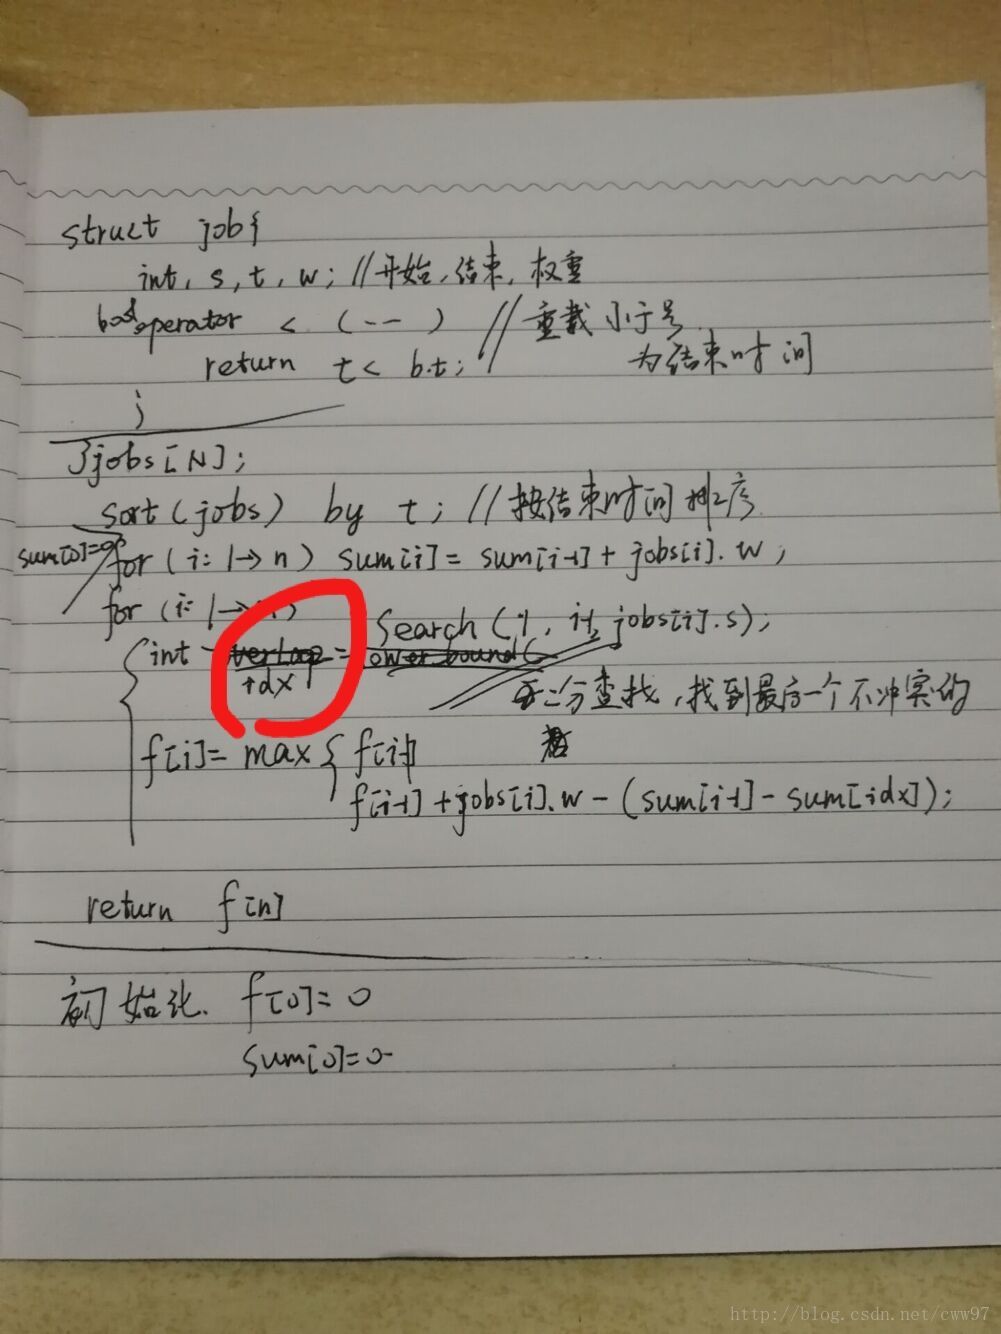 struct job{
int, s, t, w; //开始,结束,权重
bool operator < (--) //重载小于号
return t < b.t; 为结束时间
}
}jobs[N];
sort(jobs) by t; //按结束时间排序
sum[0]=0
for (i: 1→n) sum[i] = sum[i-1] + jobs[i].w;
for (i: 1→n)
Search(1, i-1, jobs[i].s);
int overlap = lower_bound(
idx
二分查找,找到最后一个不冲突的
f[i] = max { f[i-1]
f[i-1] + jobs[i].w - (sum[i-1] - sum[idx]);
return f[n]
初始化. f[0]=0
sum[0]=0
http://blog.csdn.net/cww97